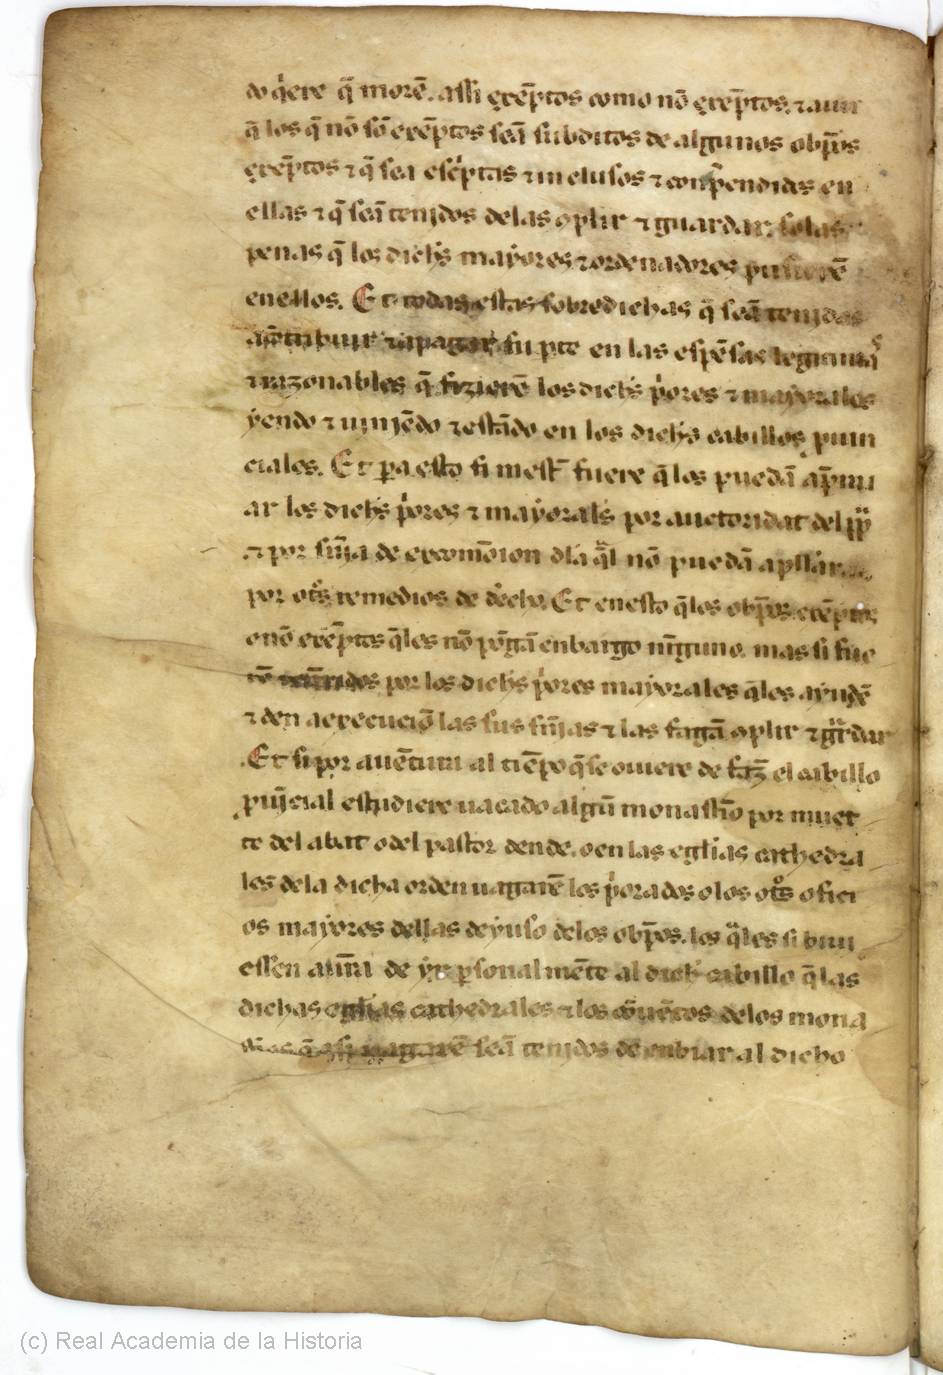 do q̇ere q̃ morẽ. assi exẽptos como nõ exẽptos. ⁊ aun
q̃ los q̃ nõ sõ exẽptos seã subditos de algunos obp̃os
exẽptos ⁊ q̃ sea escͥptas ⁊ inclusos ⁊ conp̃endidos en
ellas ⁊ q̃ seã tenjdos delas ꝯplir ⁊ guardar. so las
penas q̃ los dichͦs mayores ⁊ ordenadores pusierẽ
en ellos. Et todas estas sobredichas q̃ seã tenjdos
⁊ a pagar su pte en las espẽsas
⁊ razonables q̃ fizierẽ los dichͦs pͥores ⁊ mayorales
yendo ⁊ vinjẽdo ⁊ estãdo en los dichͦs cabillos puin
ciales. Et ꝑa esto si mest̃ fuere q̃ los puedã ap̃mi
ar los dichͦs pͥores ⁊ mayorals por auctoridat del pp̃
⁊ por sñja de excomõion dla q̃l nõ puedã
por otͦs remedios de dͥecho. Et en esto q̃ los obp̃os exẽptos
o nõ exẽptos q̃ les nõ põgã enbargo nĩguno. mas si fue
rẽ por los dichͦs pͥores mayorales q̃ los ayudẽ
⁊ den a execuciõ las sus sñjas ⁊ las fagã ꝯplir ⁊ gͣrdar
Et si por auẽtura al tiẽpo q̃ se ouiere de faz̃ el cabillo
puĩcial estudiere uacado algũ monastͥo por muer
te del abat o del pastor dende. o en las eglias cathedra
les dela dicha orden uagarẽ los pͥorados o los otͦs ofici
os mayores dellas deyuso delos obp̃os. los q̃les si biui
essen auiã de yr ꝑsonal mẽte al dichͦ cabillo q̃ las
dichas eglias cathedrales ⁊ los cõuẽtos delos mona
q̃ asi uagarẽ seã tenjdos de enbiar al dicho
(c) Real Academia de la Historia